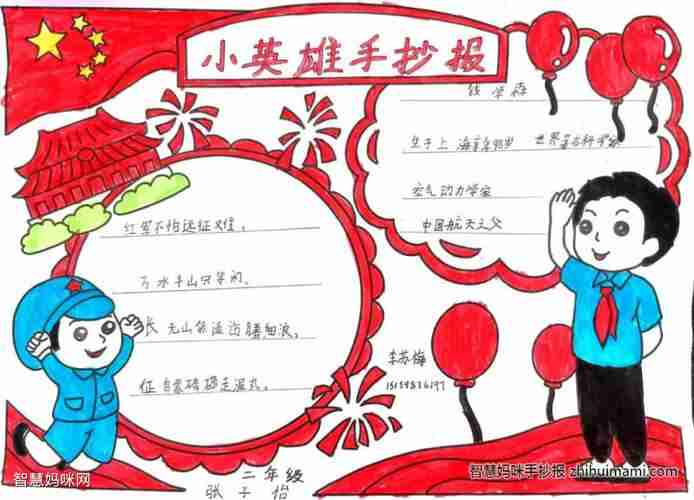 小英雄手抄报
钱学森
生于上海, 享年98岁 世界著名科学家
空气动力学家
中国航天之父
红军不怕远征难。
万水千山只等闲。
长 五岭逶迤腾细浪。
征 乌蒙磅礴走泥丸。
李苏梅
二年级
张子怡
智慧妈咪网
智慧妈咪手抄报 zhihuimami.com